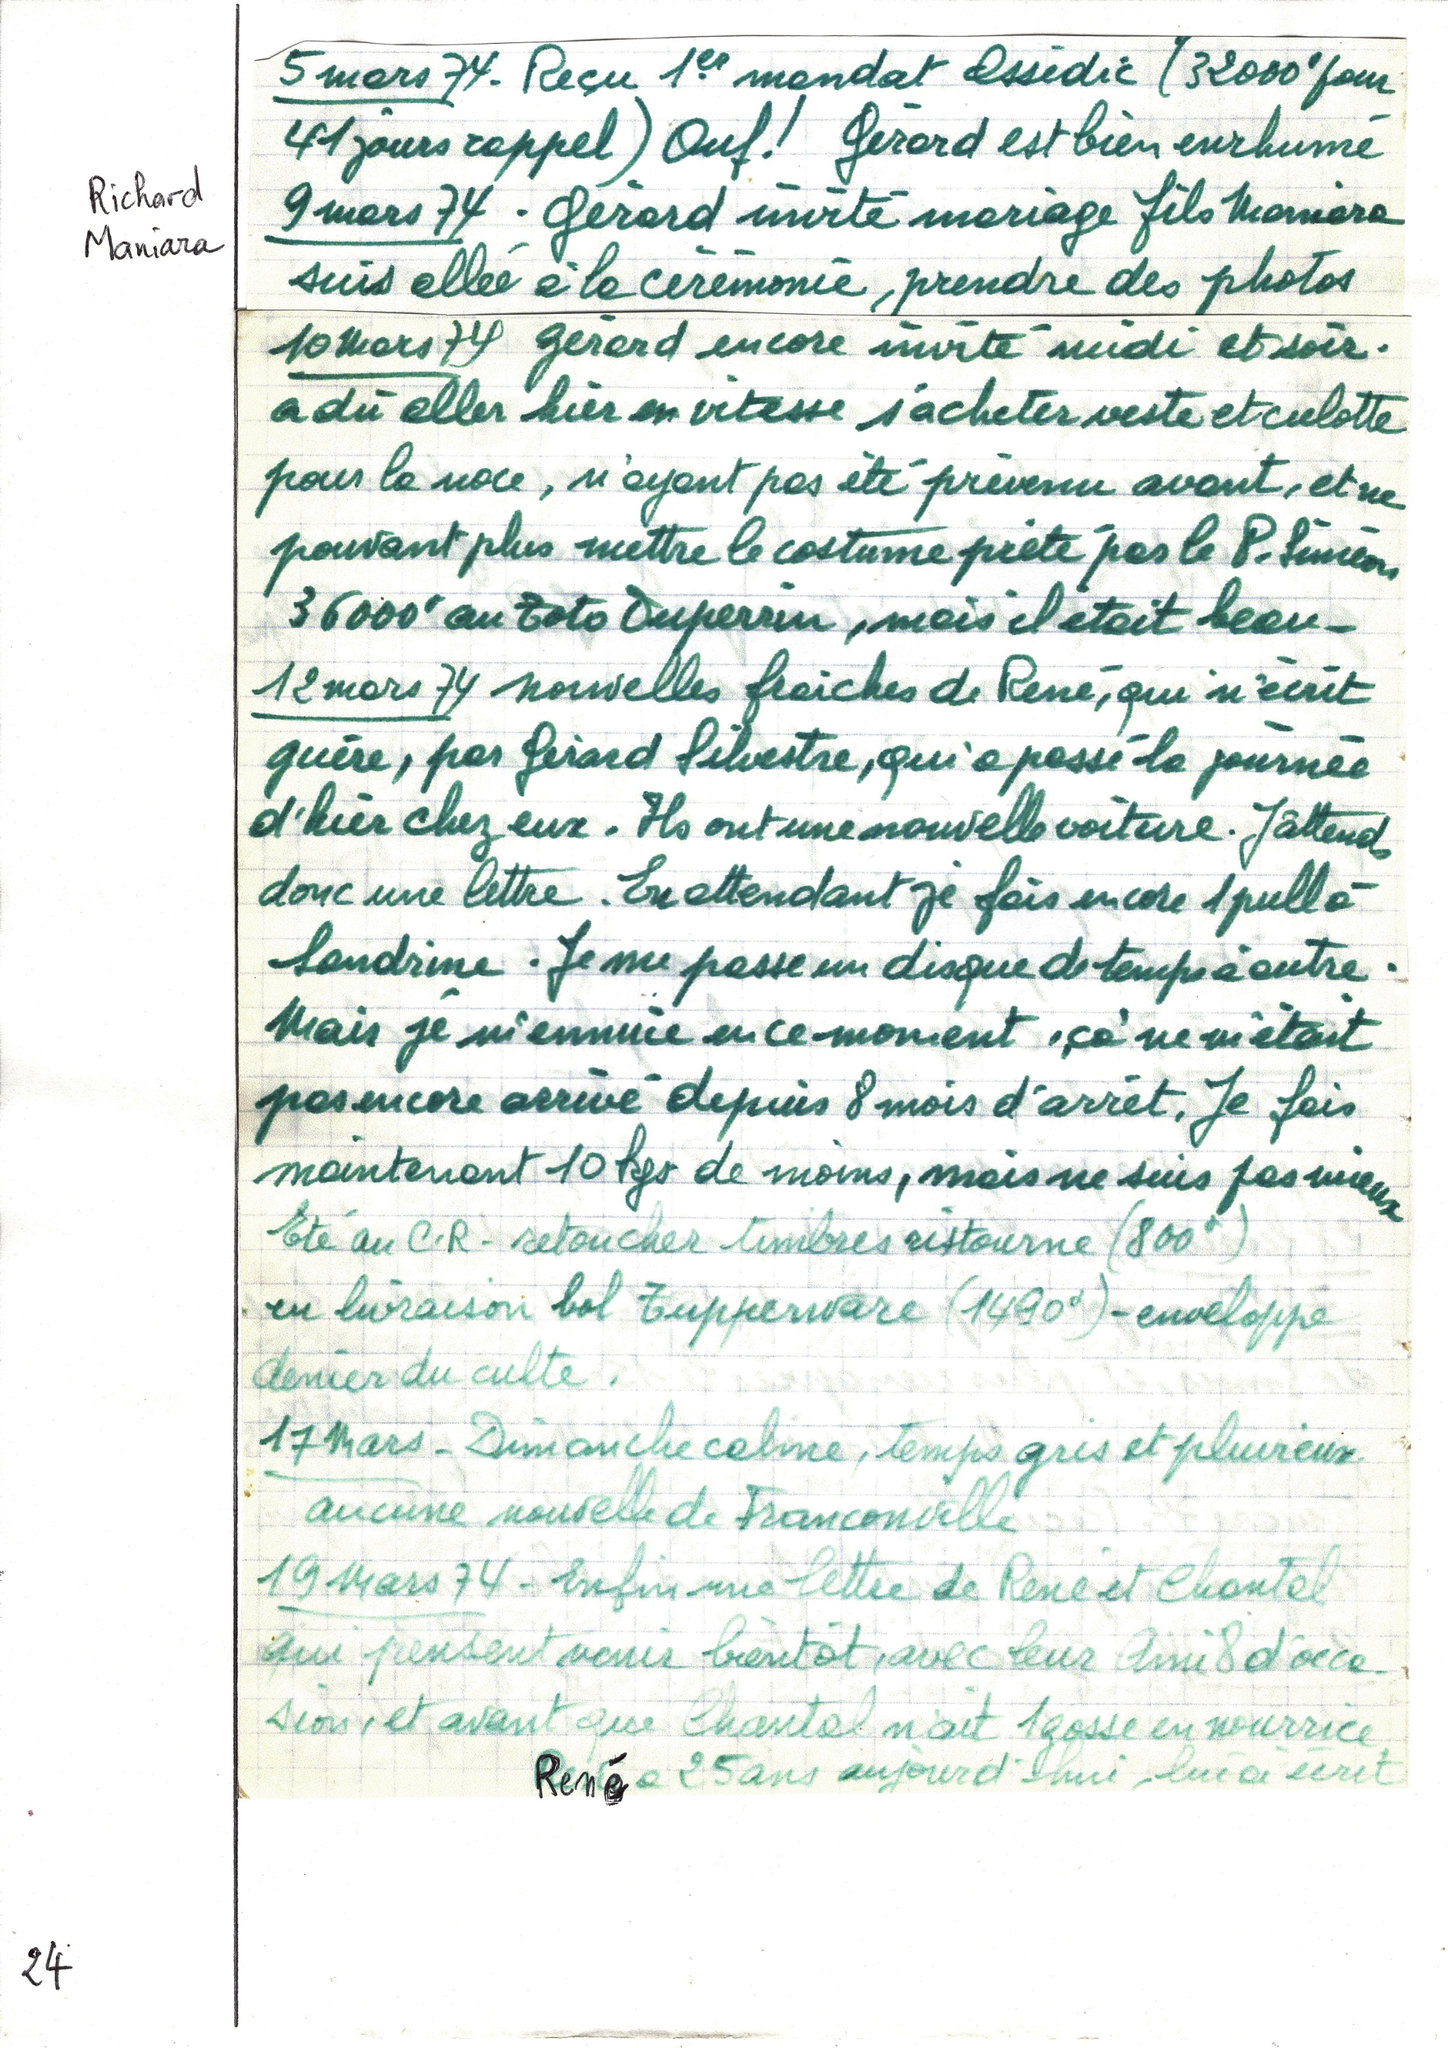 5 mars 74. Reçu 1er mandat Assédic (32000f pour
41 jours rappel) Ouf! Gérard est bien enrhumé
Richard
Maniara
9 mars 74. Gérard invité mariage fils Maniara
suis allée à la cérémonie, prendre des photos
10 Mars 74 Gérard encore invité midi et soir.
a dû aller hier en vitesse s'acheter veste et culotte
pour la noce, n'ayant pas été prévenu avant, et ne
pouvant plus mettre le costume prêté par le P. Siméon
36000f au Toto Duperrin, mais il était beau-
12 mars 74 nouvelles fraîches de René, qui n'écrit
guère, par Gérard Silvestre, qui a passé la journée
d'hier chez eux. Ils ont une nouvelle voiture. J'attends
donc une lettre. En attendant je fais encore 1 pull à
Sandrine. Je me passe un disque de temps à autre.
Mais je m'ennuie en ce moment, ça ne m'était
pas encore arrivé depuis 8 mois d'arrêt. Je fais
maintenant 10 kgs de moins, mais ne suis pas mieux
Eté au C.R - retoucher timbres ristourne (800f)
en livraison bol Tupperware (1490f) - enveloppe
denier du culte.
17 Mars - Dimanche calme, temps gris et pluvieux.
aucune nouvelle de Franconville
19 Mars 74 - Enfin une lettre de René et Chantal
qui pensent venir bientôt, avec leur Ami 8 d'occa-
sion, et avant que Chantal n'ait 1 gosse en nourrice.
René a 25 ans aujourd'hui, lui ai écrit
24